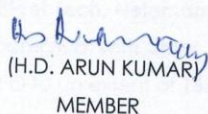 (H.D. ARUN KUMAR)
MEMBER